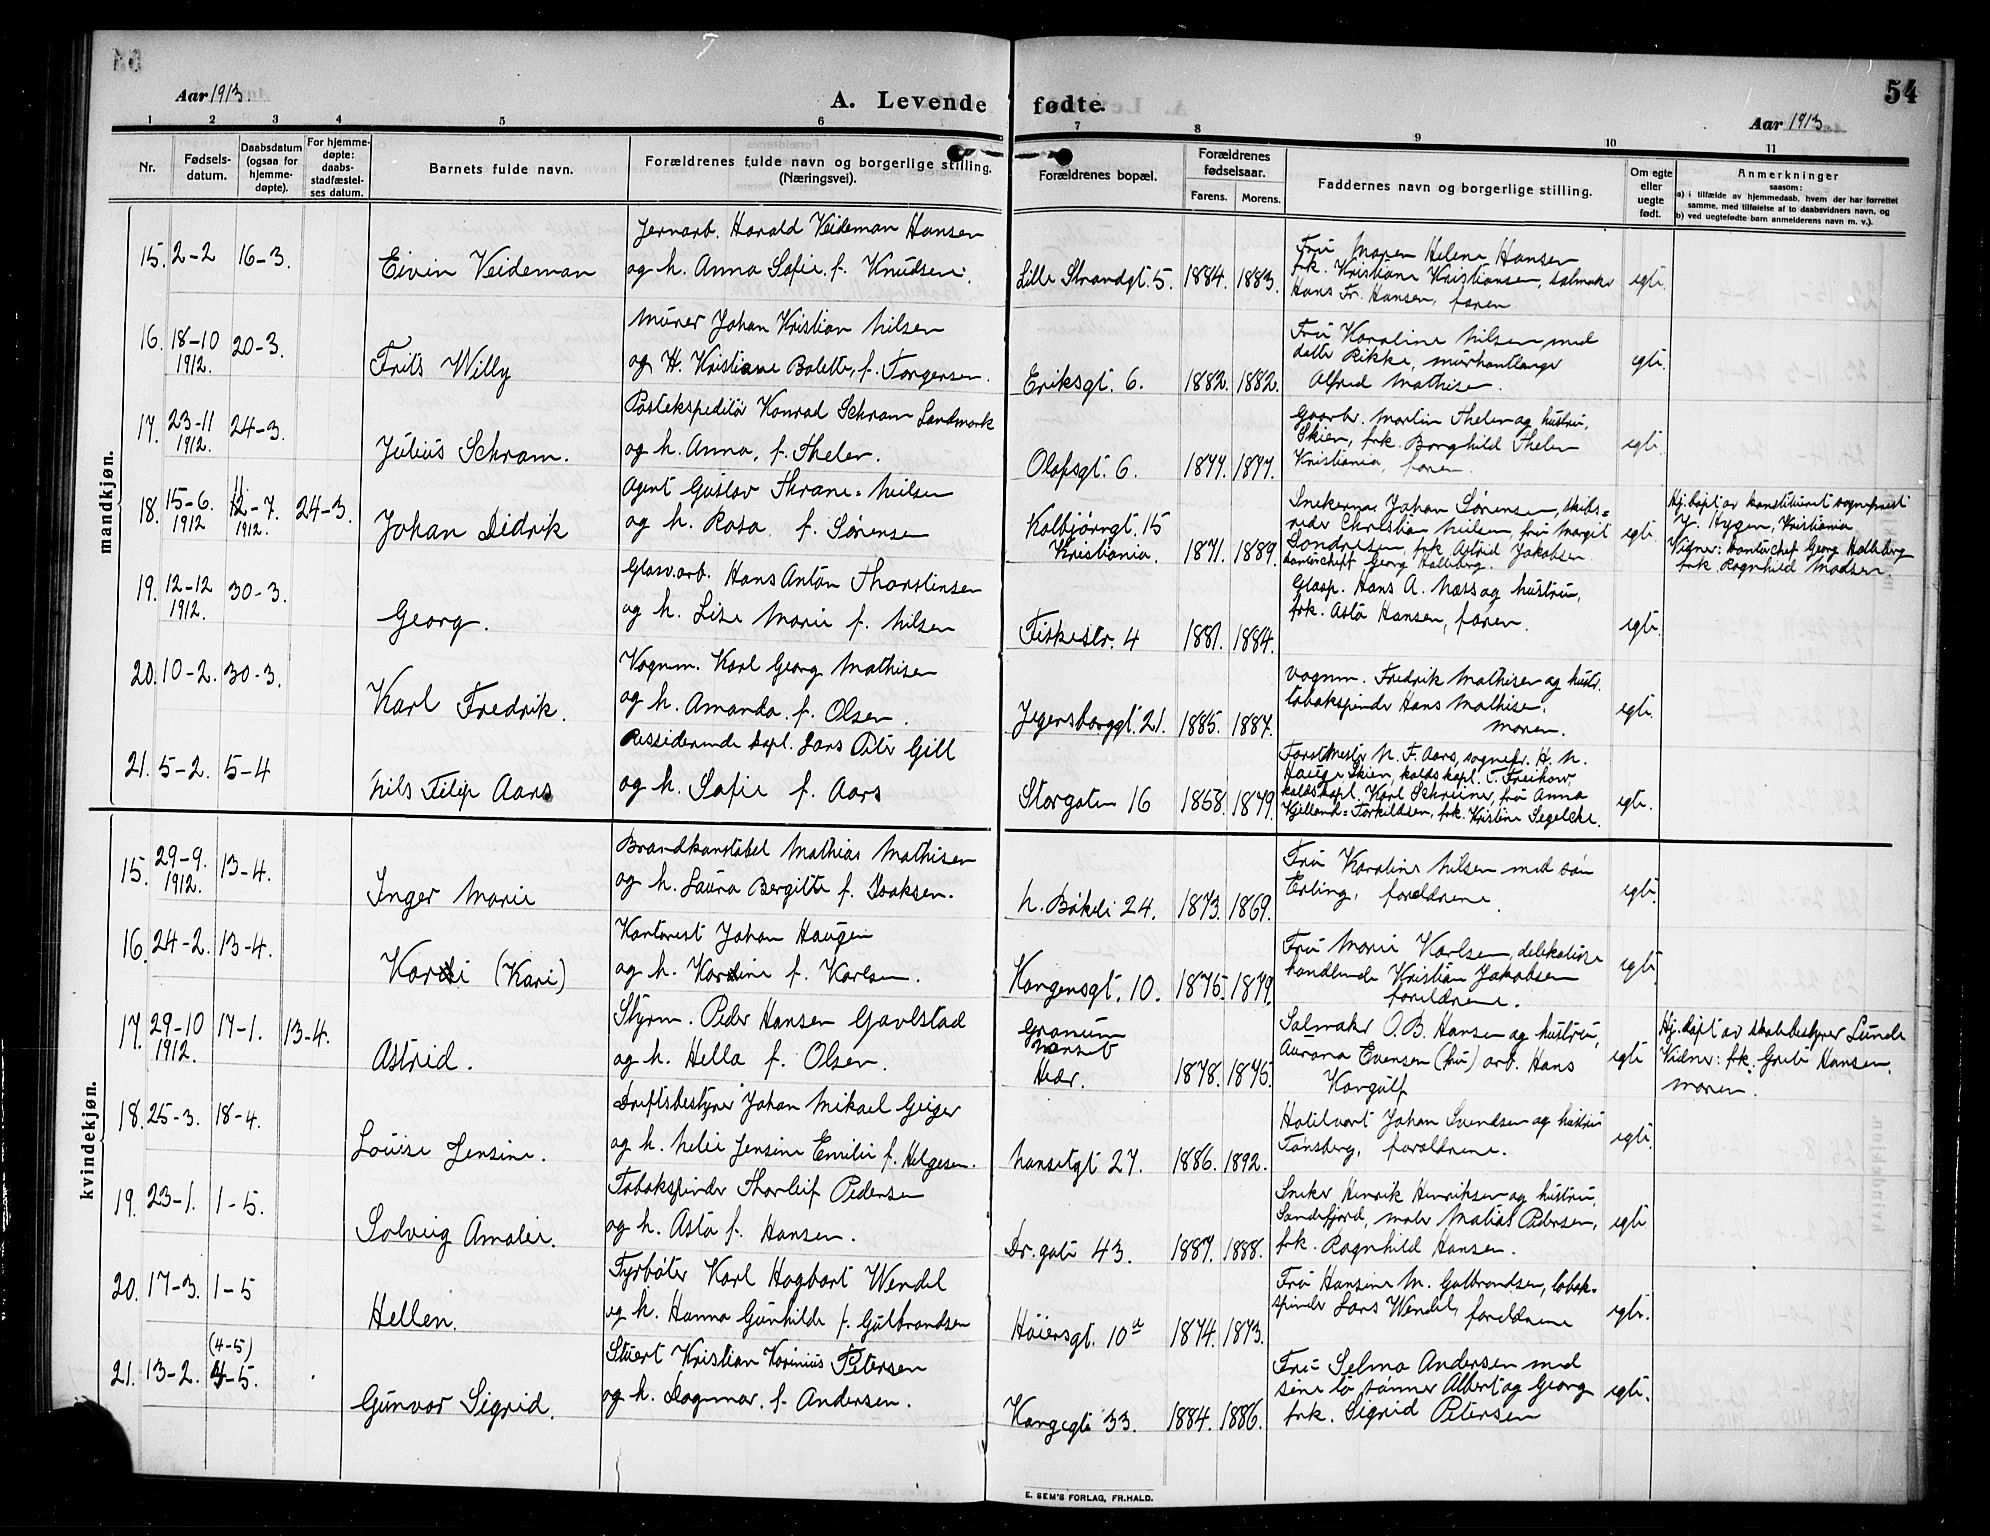 54
Aar 1913.
A. Levende fødte.
Aar 1913
1 2 3 4 5 6 7 8 9 10 11
Nr.
Fødsels-
datum.
Daabsdatum
(ogsaa for
hjemme-
døpte).
For hjemme-
døpte:
daabs-
stadfæstel-
ses datum.
Barnets fulde navn.
Forældrenes fulde navn og borgerlige stilling.
(Næringsvei).
Forældrenes bopæl.
Forældrenes
fødselsaar.
Farens. Morens.
Faddernes navn og borgerlige stilling.
Om egte
eller
uegte
født.
Anmerkninger
saasom:
a) i tilfælde av hjemmedaab, hvem der har forrettet
samme, med tilføielse af to daabsvidners navn, og
b) ved uegtefødte barn anmelderens navn m. v.).
mandkjøn.
15. 2-2 16-3.
Eivin Veideman
Jernarb. Harald Veideman Hansen
og h. Anna Sofie, f. Knudsen.
Lille Strandgt. 5. 1884. 1883.
Fru Maren Helene Hansen
frk. Kristiane Kristiansen, salmaker
Hans Fr. Hansen, faren
egte.
16. 18-10
1912. 20-3.
Frits Willy
Murer Johan Kristian Nilsen
og H. Kristiane Bolette, f. Torgersen.
Eriksgt. 6. 1882. 1882.
Fru Karoline Nilsen med
datter Rikke, murhantlanger
Alfred Mathisen.
egte.
17. 23-11
1912. 24-3.
Julius Schram.
Postekspeditør Konrad Schram Landmark
og h. Anna, f. Thelen.
Olafsgt. 6. 1877. 1877.
Gaarbr. Martin Thelen og hustru,
Skien, frk. Borghild Thelen
Kristiania, faren.
egte.
18. 15-6.
1912 12-7.
1912. 24-3.
Johan Didrik
Agent Gustav Thrane-Nielsen
og h. Rosa f. Sørensen
Kolbjørngt. 15
Kristiania. 1871. 1889.
Snekerm. Johan Sørensen, skibs=
reder Christian Nielsen, fru Margit
frk. Astrid Jakobsen
kontorchef Georg Halleberg.
egte.
Hj. døpt av konstitueret sogneprest
J. Hygen, Kristiania
Vidner: kontorchef Georg Halleberg
frk. Ragnhild Madsen.
19. 12-12
1912. 30-3.
Georg.
Glasv.arb. Hans Anton Thorstensen
og h. Lise Marie f. Nilsen
Fiskestr. 4 1881. 1884.
Glasp. Hans A. Næss og hustru,
frk. Asta Hansen, faren.
egte.
20. 10-2. 30-3.
Karl Fredrik.
Vognm. Karl Georg Mathisen
og h. Amanda f. Olsen.
Jegersborggt. 21. 1885. 1887.
Vognm. Fredrik Mathisen og hustr.
tobakspinder Hans Mathisen.
moren.
egte.
21. 5-2. 5-4
Nils Filip Aars
Residerende kapl. Lars Peter Gill
og h. Sofie f. Aars
Storgaten 16 1868. 1879.
Forstmester N. F. Aars, sognepr. H. N.
Hauge Skien, kaldskapl.
kaldskapl. Karl Schreiner, fru Anna
Kjelland=Torkildsen, frk. Kristine Segelcke.
egte.
kvindekjøn.
15. 29-9.
1912. 13-4.
Inger Marie
Brandkonstabel Mathias Mathisen
og h. Laura Bergitte f. Isaksen.
N. Bøkeli 24. 1873. 1869.
Fru Karoline Nilsen med søn
Erling, forældrene.
egte.
16. 24-2. 13-4.
(Kari)
Kontorist Johan Haugen
og h. f. Karlsen.
Kongensgt. 10. 1875. 1879.
Fru Marie Karlsen, delikatesse
handlende Kristian Jakobsen
forældrene.
egte.
17. 29-10
1912. 17-1. 13-4.
Astrid.
Styrm. Peder Hansen Gavlstad
og h. Hella f. Olsen.
Granum
Hedr. 1878. 1875.
Salmaker O. B. Hansen og hustru,
Aurora Evensen (fru) arb. Hans
egte
Hj. døpt av skolebestyrer Lunde
Vidner: frk. Grete Hansen.
moren.
18. 25-3. 18-4.
Louise Jensine.
Driftsbestyrer Johan Mikael Geiger
og h. Jensine Emilie f. Helgesen.
Nansetgt 27. 1886. 1892.
Hotelvert Johan Svendsen og hustru
Tønsberg, forældrene.
egte.
19. 23-1. 1-5.
Solveig Amalie.
Tobakspinder Thorleif Pedersen
og h. Asta f. Hansen.
Dr. gate 43. 1887. 1888.
Sneker Henrik Henriksen og hustru,
Sandefjord, maler Matias Pedersen,
frk. Ragnhild Hansen.
egte
20. 17-3. 1-5
Hellen.
Fyrbøter Karl Hagbart Wendel
og h. Hanna Gunhilde f. Gulbrandsen
Høiersgt. 10a 1874. 1873.
Fru Hansine M. Gulbrandsen, tobak-
spinder Lars Wendel, forældrene
egte.
21. 13-2. (4-5)
4-5.
Gunvor Sigrid.
Stuert Kristian Korinius Petersen
og h. Dagmar, f. Andersen.
Kongegt. 33. 1884. 1886.
Fru Selma Andersen med
sine to sønner Albert og Georg
frk. Sigrid Petersen
egte.
E. SEM'S FORLAG, FR.HALD.